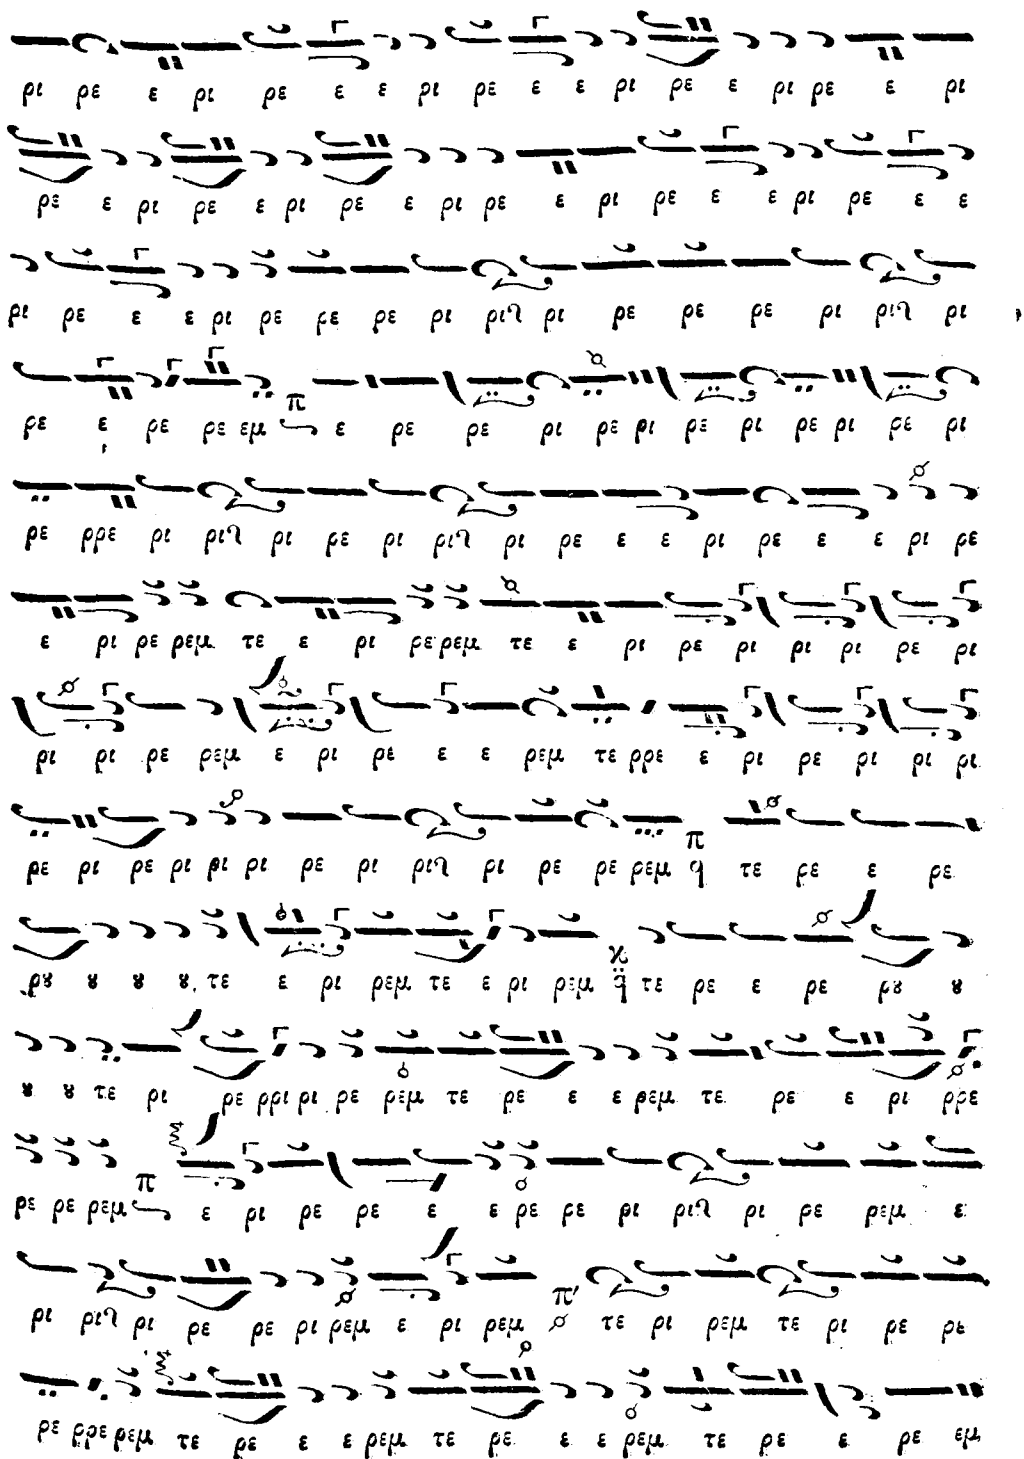 ρι ρε ε ρι ρε ε ε ρι ρε ε ε ρι ρε ε ρι ρε ε ρι
ρε ε ρι ρε ε ρι ρε ε ρι ρε ε ρι ρε ε ε ρι ρε ε ε
ρι ρε ε ε ρι ρε ρε ρε ρι ριϡ ρι ρε ρε ρε ρι ριϡ ρι
ρε ε ρε ρε εμ π ε ρε ρε ρι ρε ρι ρε ρι ρε ρι ρε ρι
ρε ρρε ρι ριϡ ρι ρε ρι ριϡ ρι ρε ε ε ρι ρε ε ε ρι ρε
ε ρι ρε ρεμ τε ε ρι ρε ρεμ τε ε ρι ρε ρι ρι ρι ρε ρι
ρι ρι ρε ρεμ ε ρι ρε ε ε ρεμ τε ρρε ε ρι ρε ρι ρι ρι
ρε ρι ρε ρι ρι ρι ρε ρι ριϡ ρι ρε ρε ρεμ π q τε ρε ε ρε
ρȣ ȣ ȣ ȣ τε ε ρι ρεμ τε ε ρι ρεμ ϰ q̈ τε ρε ε ρε ρȣ ȣ
ȣ ȣ τε ρι ρε ρρι ρι ρε ρεμ τε ρε ε ε ρεμ τε ρε ε ρι ρρε
ρε ρε ρεμ π ε ρι ρε ρε ε ε ρε ρε ρι ριϡ ρι ρε ρεμ ε
ρι ριϡ ρι ρε ρε ρι ρεμ ε ρι ρεμ π' τε ρι ρεμ τε ρι ρε ρε
ρε ρρε ρεμ τε ρε ε ε ρεμ τε ρε ε ε ρεμ τε ρε ε ρε εμ